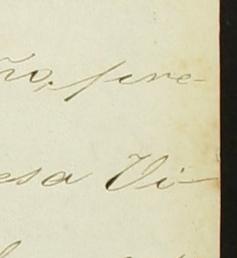 ño, pre-
esa Vi-